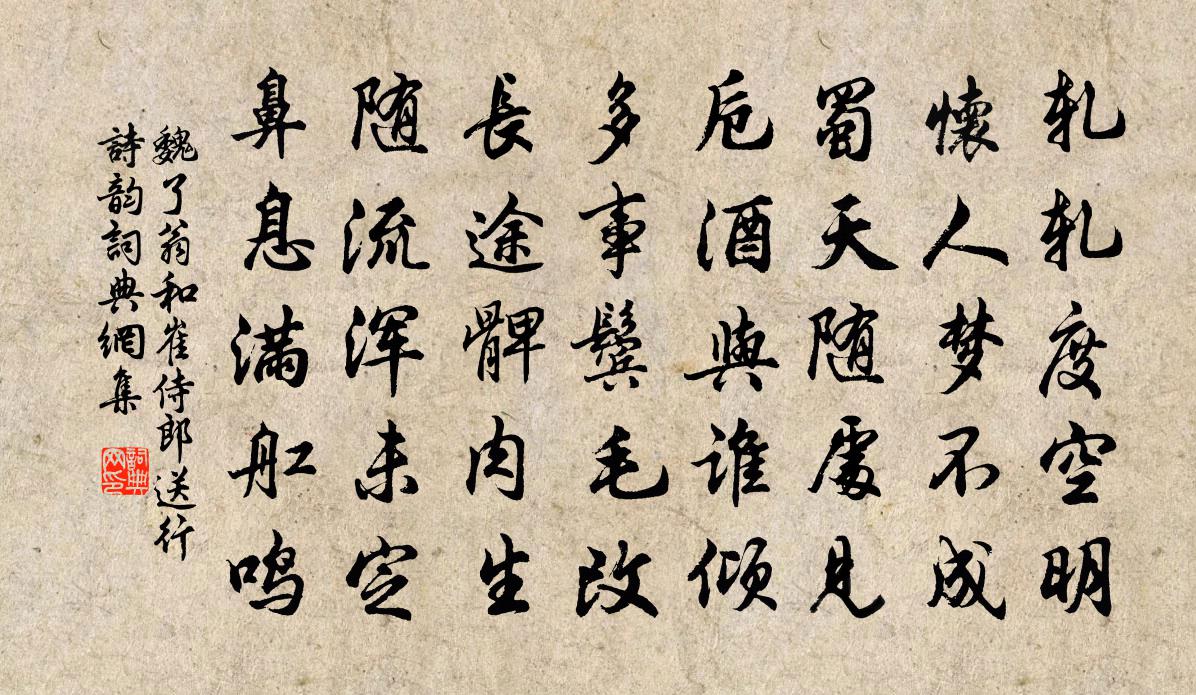 轧轧度空明
懷人梦不成
蜀天随處見
卮酒與谁倾
多事鬓毛改
長途髀肉生
随流浑未定
鼻息满舡鸣
魏了翁和崔侍郎送行
詩韵詞典網集
詞典网印